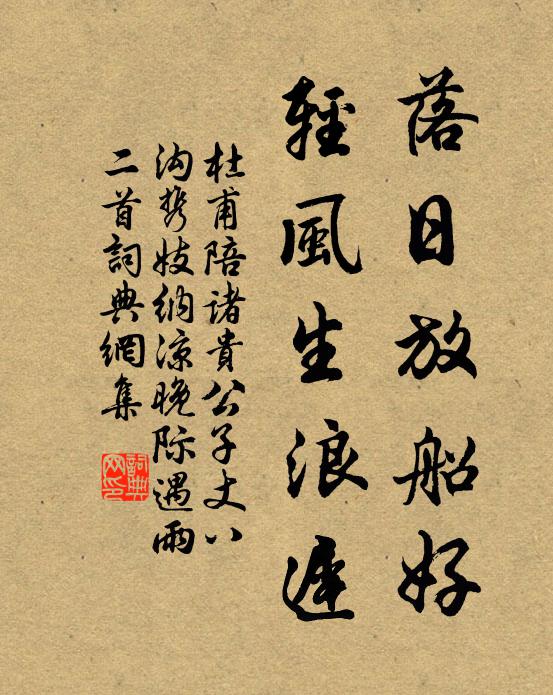 落日放船好
輕風生浪遲
杜甫陪诸貴公子丈八
沟携妓納凉晚际遇雨
二首詞典網集
詞典网印